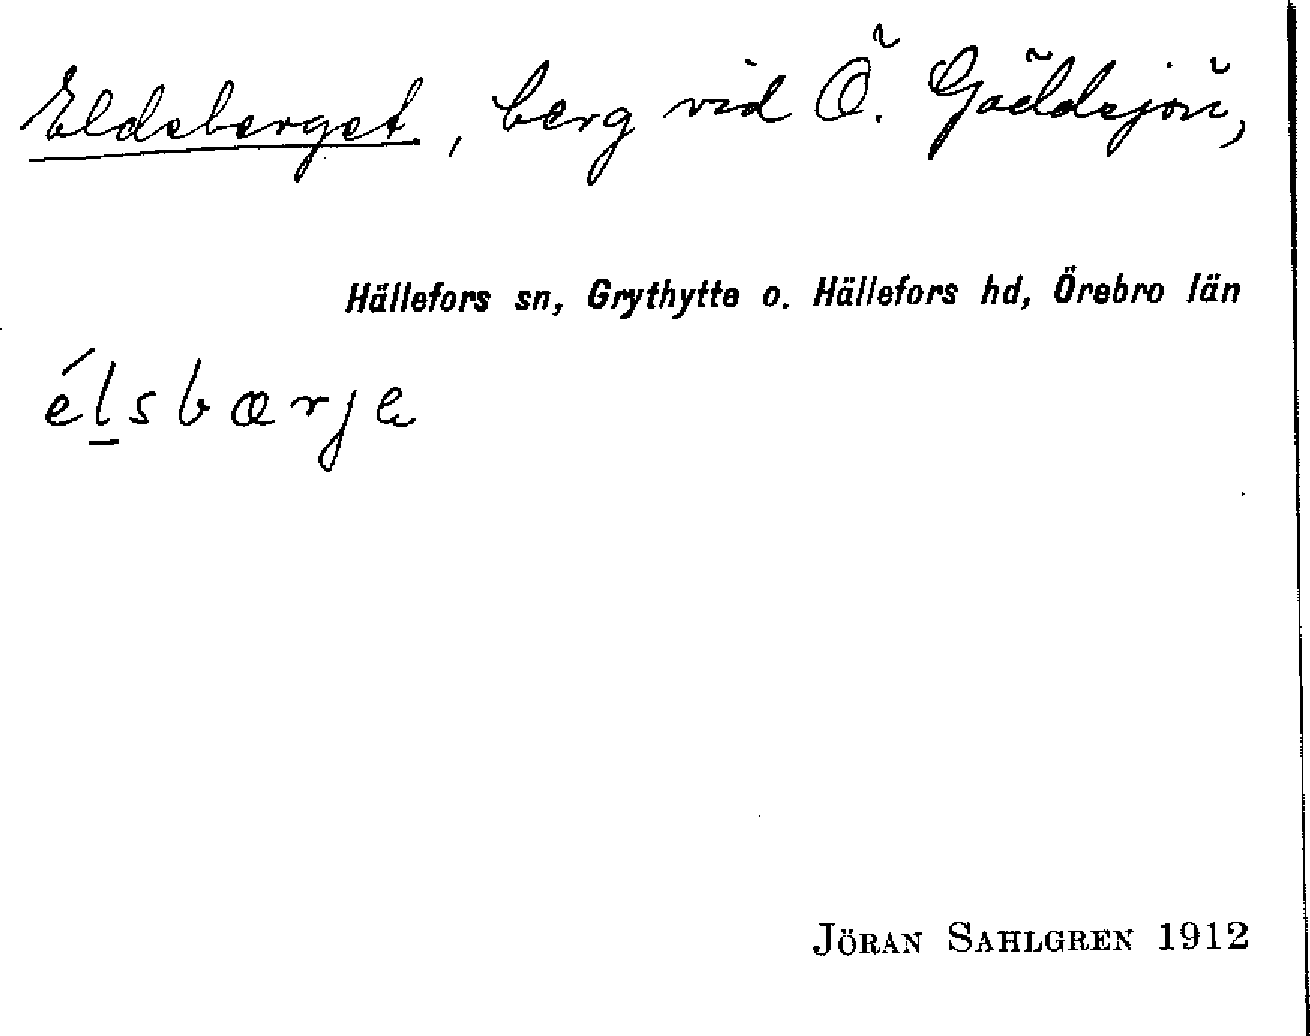 Eldsberget, berg vid Ö. Gäddsjön,
Hällefors sn, Grythytte o. Hällefors hd, Örebro län
élsbærja
JÖRAN SAHLGREN 1912